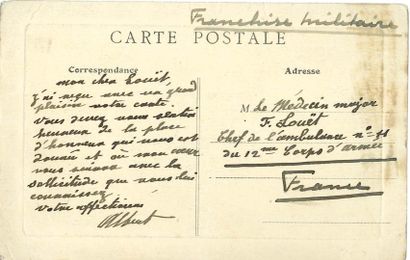 Franchise militaire
CARTE POSTALE
Correspondance
Adresse
mon cher Louët,
j'ai reçu avec un grand
plaisir votre carte.
Vous devez vous
heureux de la place
d'honneur qui nous est
et où
nous avec la
sollicitude que nous lui
connaissez
votre affectionné
Albert
M. Le Médecin major
F. Louët
Chef de l'ambulance n°
du 12me Corps d'armée
France